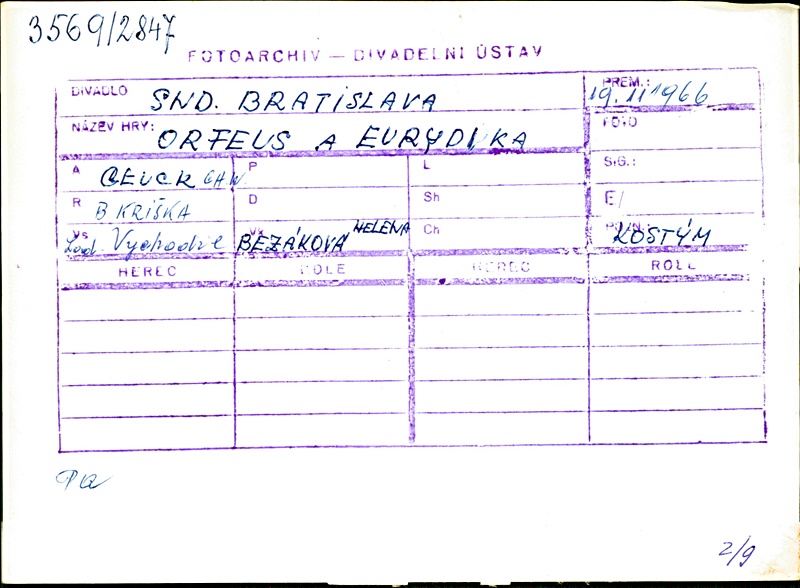 3569/2847
FOTOARCHIV — DIVADELNÍ ÚSTAV
DIVADLO SND. BRATISLAVA PREM.: 19.11.1966
NÁZEV HRY: ORFEUS A EURYDIKA FOTO
A GLUCK CHW. P L SIG.:
R B KRIŠKA D Sh E/
Vs Lad. Vychodil Vk BEZÁKOVÁ HELENA Ch KOSTÝM
HEREC ROLE HEREC ROLE
2/9